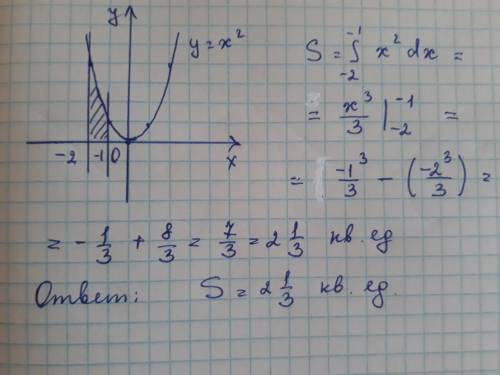 y
y = x²
-2 -1 0 x
S = ∫₋₂⁻¹ x² dx =
= x³/3 |₋₂⁻¹ =
= -1³/3 - (-2³/3) =
= - 1/3 + 8/3 = 7/3 = 2 1/3 кв. ед
Ответ: S = 2 1/3 кв. ед.